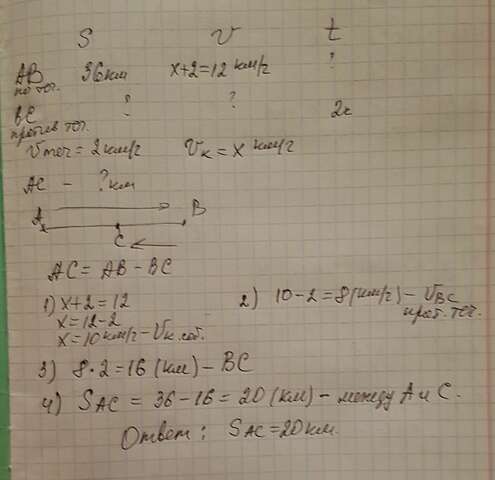 S V t
AB 36км x+2=12 км/г ?
по теч.
BC ? ? 2г
против теч.
Vтеч = 2км/г Vк = x км/г
AC – ?км
A B
C
AC = AB – BC
1) x+2 = 12
x = 12-2
x = 10 км/г – Vк соб.
2) 10-2 = 8 (км/г) – VBC
прот. теч.
3) 8·2=16 (км) – BC
4) SAC = 36-16 = 20 (км) – между A и C.
Ответ: SAC = 20км.